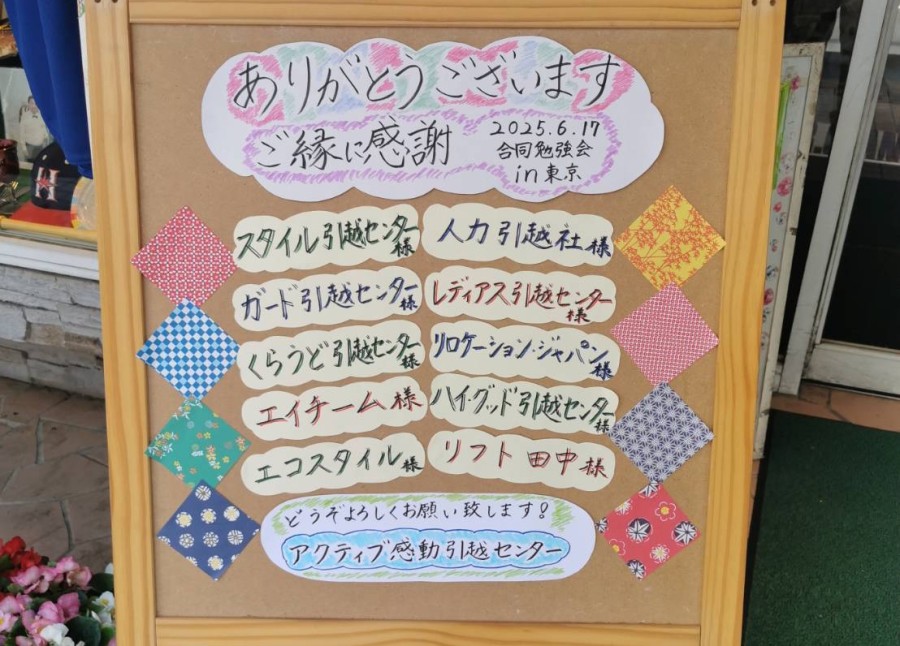 ありがとうございます
ご縁に感謝
2025.6.17
合同勉強会
in 東京
スタイル引越センター様
人力引越社様
ガード引越センター様
レディアス引越センター様
くらうど引越センター様
リロケーション・ジャパン様
エイチーム様
ハイ・グッド引越センター様
エコスタイル様
リフト田中様
どうぞよろしくお願い致します!
アクティブ感動引越センター
H